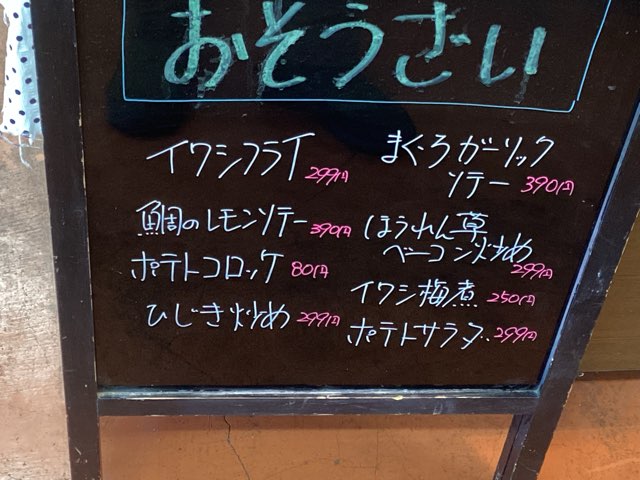 おそうざい
イワシフライ 299円
鯛のレモンソテー 390円
ポテトコロッケ 80円
ひじき炒め 299円
まぐろガーリック
ソテー 390円
ほうれん草
ベーコン炒め
299円
イワシ梅煮 250円
ポテトサラダ 299円